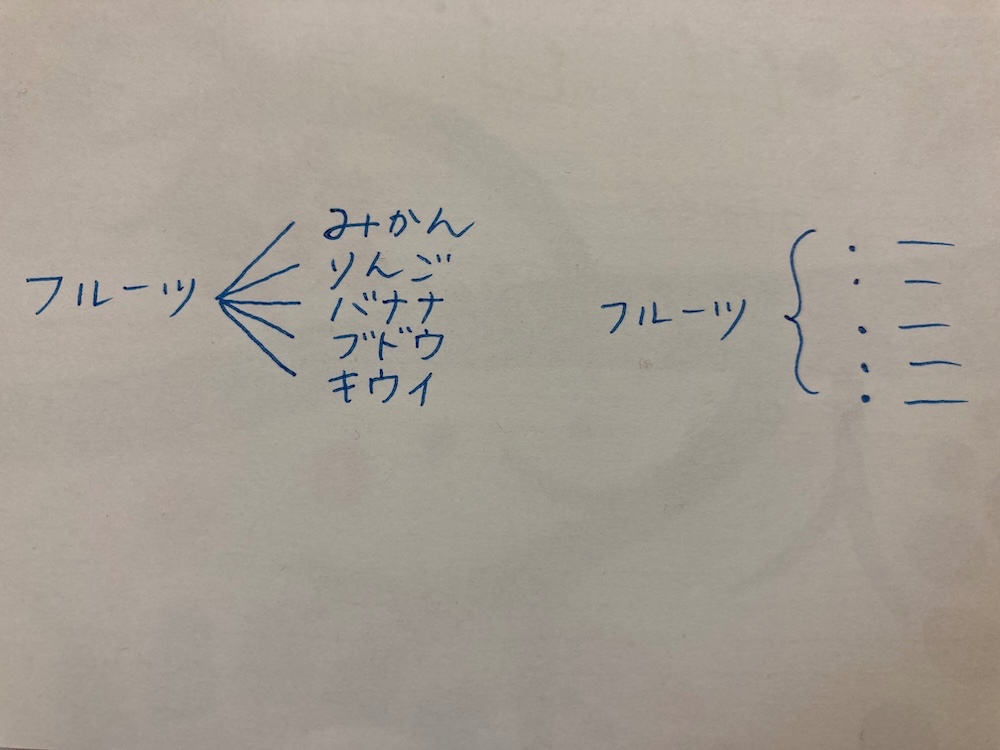 フルーツ
みかん
りんご
バナナ
ブドウ
キウイ
フルーツ